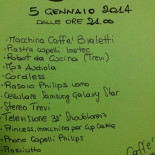 5 GENNAIO 2014
DALLE ORE 21.00
- Macchina Caffè Bialetti
- Piastra capelli Imetec
- Robot da Cucina (Trevi)
- Mp3 Audiola
- Cordless
- Rasoio Philips uomo
- Cellulare Samsung Galaxy Star
- Stereo Trevi
- Televisore 32"
- Princess macchina per Cup Cake
- Phon Capelli Philips
- Prosciutto
Caffè